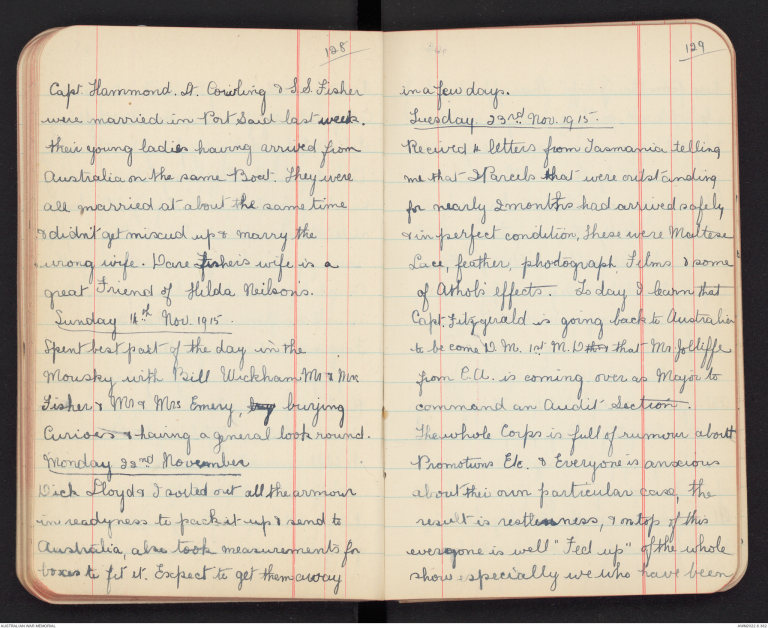 128
Capt. Hammond. Lt. Cowling & S.S. Fisher
were married in Port Said last week.
their young ladies having arrived from
Australia on the same Boat. They were
all married at about the same time
& didn't get mixed up & marry the
wrong wife. Dave Fisher's wife is a
great Friend of Hilda Neilson's.
Sunday Nov. 1915.
Spent best part of the day in the
Mousky with Bill Wickham Mr & Mrs
Fisher & Mr & Mrs Emery, buying
Curios & having a general look round.
Monday 22nd November
Dick Lloyd & I sorted out all the armour
in readyness to pack it up & send to
Australia, also took measurements for
boxes to fit it. Expect to get them away
129
in a few days.
Tuesday 23rd Nov. 1915.
Recived 4 letters from Tasmania telling
me that 2 Parcels that were outstanding
for nearly 2 months had arrived safely
& in perfect condition, these were Maltese
Lace, feather, photograph Films & some
of Athol's effects. To day I learn that
Capt. Fitzgerald is going back to Australia
to be come D.M. 1st M.D. that Mr Jolliffe
from E.A. is coming over as Major to
command an Audit Section.
The whole Corps is full of rumour about
Promotions Etc. & Everyone is anxious
about their own particular case, the
result is restlessness, & on top of this
everyone is well "Fed up" of the whole
show especially we who have been
AUSTRALIAN WAR MEMORIAL